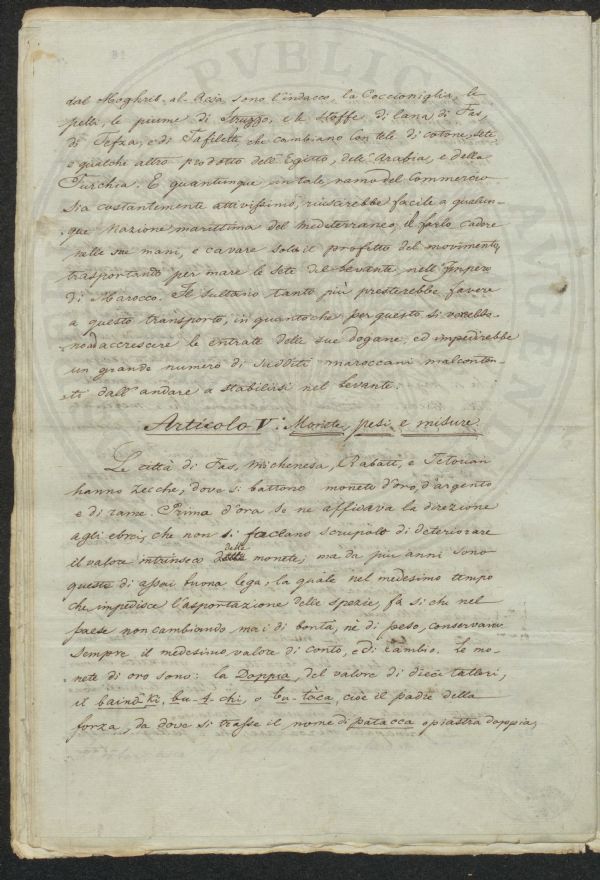 dal Moghrib-al-Acsa sono l'indaco, la Coccioniglia, le
pelli, le piume di Struzzo, e le stoffe di lana di Fas,
di Tefza, e di Tafilett, che cambiano con tele di cotone, sete
e qualche altro prodotto dell'Egitto, dell'Arabia, e della
Turchia. E quantunque in tale ramo del Commercio
sia costantemente attivissimo, riuscirebbe facile a qualun-
que Nazione marittima del mediterraneo, il farlo cadere
nelle sue mani, e cavare sola il profitto del movimento,
trasportando per mare le sete del Levante nell'Impero
di Marocco. Il sultano tanto più presterebbe favore
a questo transporto, in quantoche per questo si verrebbe-
ro ad accrescere le entrate delle sue dogane, ed impedirebbe
un grande numero di sudditi maroccani malconten-
ti dall'andare a stabilirsi nel Levante.
Articolo V: Monete, pesi e misure.
Le città di Fas, Michenesa, Rabatt, e Tetouan
hanno Zecche, dove si battono monete d'oro, d'argento
e di rame. Prima d'ora se ne affidava la direzione
agli ebrei, che non si faceano scrupolo di deteriorare
il valore intrinseco delle monete; ma da più anni sono
queste di assai buona lega, la quale nel medesimo tempo
che impedisce l'asportazione delle spezie, fa si che nel
paese non cambiando mai di bontà, nè di peso, conservano
sempre il medesimo valore di conto, e di cambio. Le mo-
nete di oro sono: la Doppia, del valore di dieci tallari,
il baindki, bu-t-chi, o bu-tàca, cioè il padre della
forza, da dove si trasse il nome di patacca o piastra doppia,